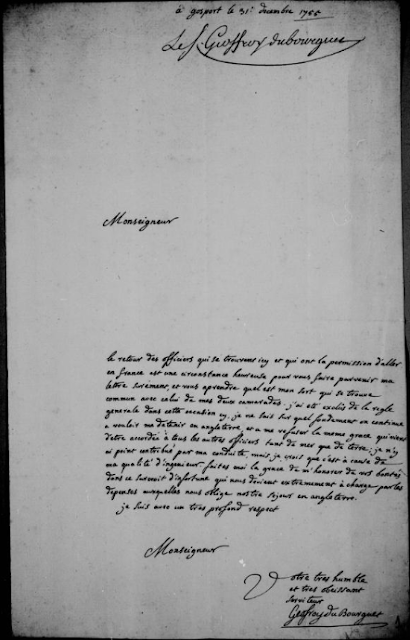 à gosport le 31e decembre 1755
Le Sr. Geoffroy du bourguet
Monseigneur
le retour des officiers qui se trouvent icy et qui ont la permission d'aller
en france est une circonstance heureuse pour vous faire parvenir ma
lettre surement, et vous aprendre quel est mon sort qui se trouve
commun avec celui de mes deux camarades. j'ai eté exclûs de la regle
generale dans cette occasion cy, je ne sais sur quel fondement on continue
a vouloir me detenir en angleterre, et a me refuser la meme grace qui vient
d'etre accordée à tous les autres officiers tant de mer que de terre. je n'y
ai point contribué par ma conduite, mais je crois que c'est à cause de
ma qualité d'ingenieur faites moi la grace de m'honorer de vos bontés
dans ce surcroit d'infortune qui nous devient extremement à charge par les
depenses auxquelles nous oblige nostre sejour en angleterre.
je suis avec un tres profond respect
Monseigneur
Votre tres humble
et tres obeissant
serviteur
Geofroy du Bourguet